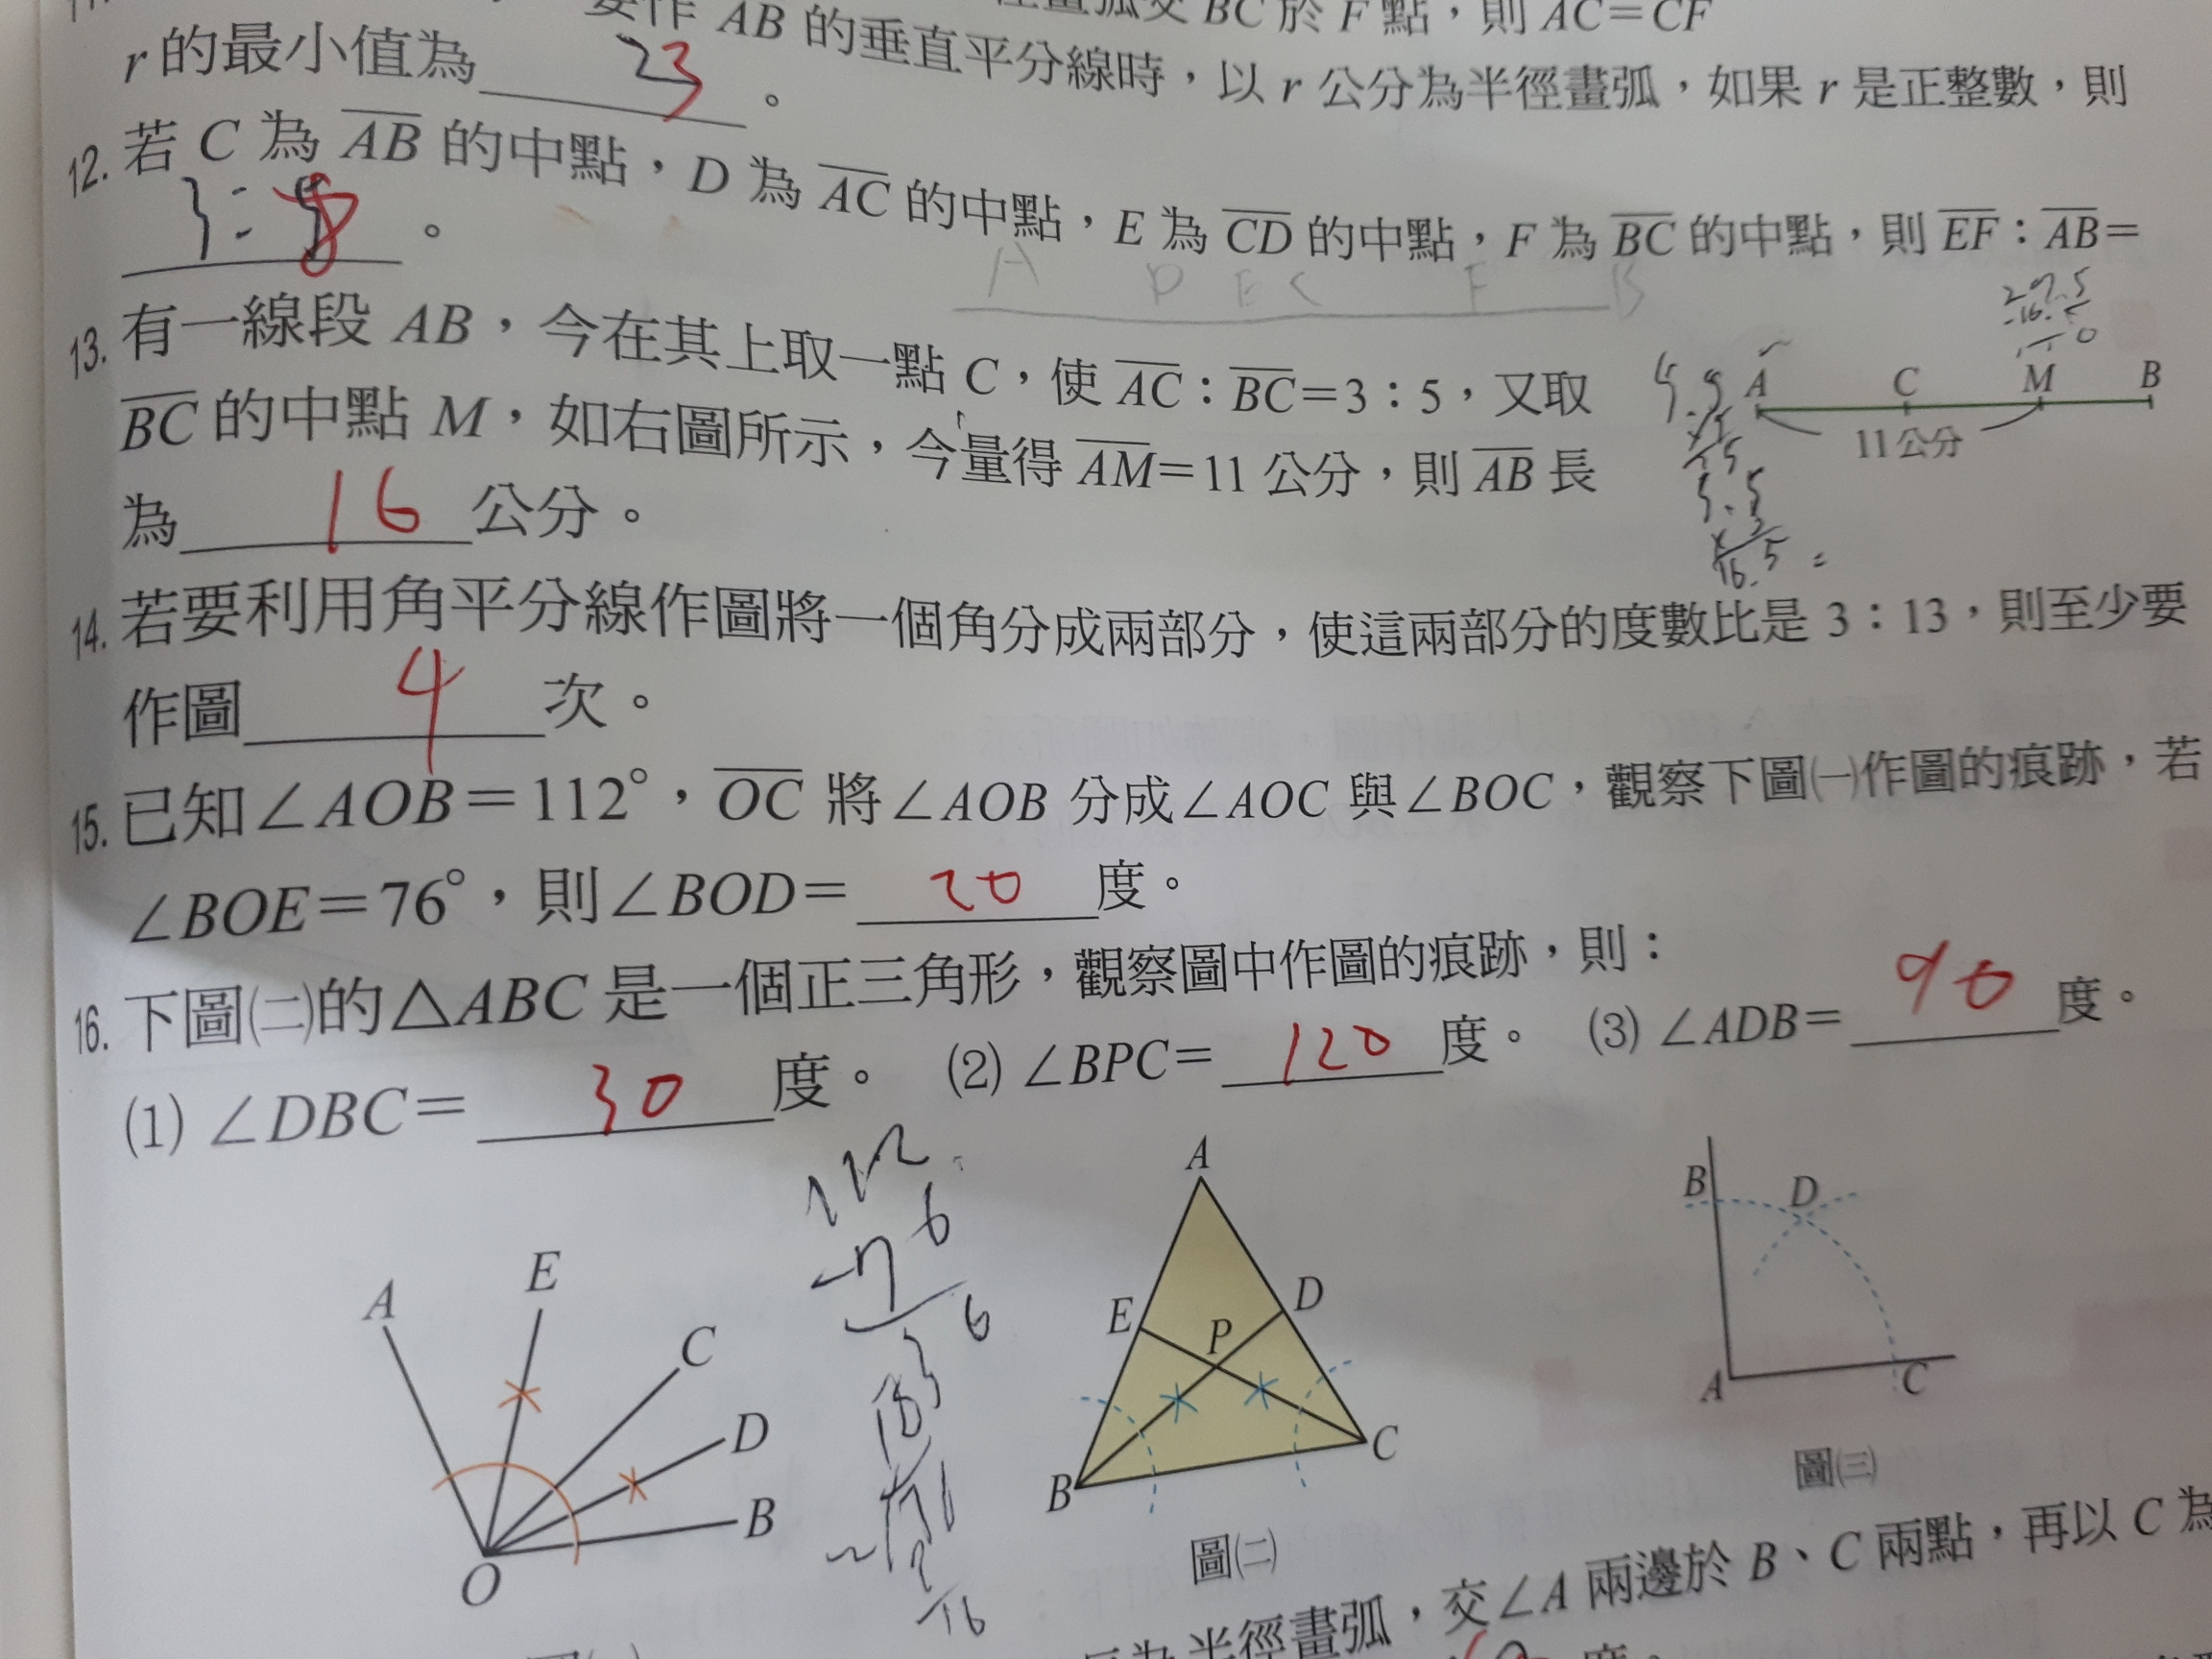 畫弧交 BC 於 F 點，則 AC＝CF
要作 AB 的垂直平分線時，以 r 公分為半徑畫弧，如果 r 是正整數，則
r 的最小值為 23 。
12. 若 C 為 AB 的中點，D 為 AC 的中點，E 為 CD 的中點，F 為 BC 的中點，則 EF：AB＝
3：8 。
A D E C F B
13. 有一線段 AB，今在其上取一點 C，使 AC：BC＝3：5，又取
BC 的中點 M，如右圖所示，今量得 AM＝11 公分，則 AB 長
為 16 公分。
A C M B
11公分
14. 若要利用角平分線作圖將一個角分成兩部分，使這兩部分的度數比是 3：13，則至少要
作圖 4 次。
15. 已知∠AOB＝112°，OC 將∠AOB 分成∠AOC 與∠BOC，觀察下圖㈠作圖的痕跡，若
∠BOE＝76°，則∠BOD＝ 20 度。
16. 下圖㈡的△ABC 是一個正三角形，觀察圖中作圖的痕跡，則：
(1) ∠DBC＝ 30 度。 (2) ∠BPC＝ 120 度。 (3) ∠ADB＝ 90 度。
A E C D B O
112
-76
36
A E D P B C
圖㈡
B D A C
圖㈢
為半徑畫弧，交∠A 兩邊於 B、C 兩點，再以 C 為
度。